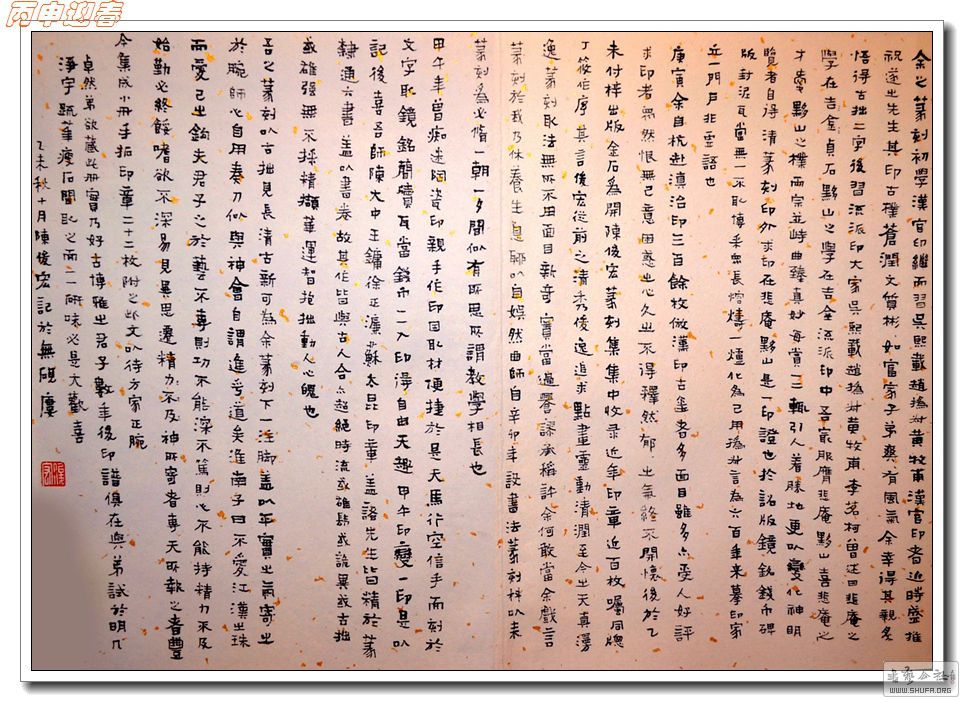 丙申迎春
余之篆刻初學漢官印繼而習吳熙載趙撝叔黃牧甫漢官印者近時盛推
祝遂之先生其印古樸蒼潤文質彬如富家子弟爽有風氣余幸得其親名
悟得古拙二字後習流派印大家吳熙載趙撝叔黃牧甫李茗柯曾述田悲庵之
學在吉金貞石黟山之學在吉金流派印中吾最服膺悲庵黟山喜悲庵之
才夢黟山之樸兩宗並峙曲臻真妙每賞一二輒引人着勝地更以變化神明
覽者自得清篆刻印外求印在悲庵黟山是一印證也於詔版鏡銘錢币碑
版封泥瓦當無一不取傳手出長熔鑄一爐化為己用撝叔言為六百年来摹印家
立一門戶非虛語也
庚寅余自杭赴滇治印三百餘枚倣漢印古璽者多面目雖多亦受人好評
求印者無然恨無己意困惑出心久出不得釋然郁出氣終不開懷後於乙
未付梓出版金石為開陳俊宏篆刻集集中收录近年印章近百枚囑同窓
丁筱伯序其言俊宏從前之清秀俊逸追求點畫靈動清潤至今出天真漫
逸篆刻取法無所不用面目新奇實當過譽謬承稱許余何敢當余戲言
篆刻於我乃休養生息聊以自娛然曲師自辛卯年設書法篆刻科以来
篆刻為必脩一朝一夕間似有所思所謂教學相長也
甲午年曾痴迷陶瓷印親手作印因取材便捷於是天馬行空信手而刻於
文字取鏡銘簡牘瓦當錢币一一入印得自由天趣甲午印變一印是以
記後喜吾師陳大中王鏞徐正濂蘇太昆印章盖諸先生皆精於篆
隸通六書盖以書卷故其作皆與古人合亦超絕時流或雄肆或詭異或古拙
或雄强無不採精擷華運智抱拙動人心魄也
吾之篆刻以古拙見長清古新可為余篆刻下一注脚盖以平實出氣寄出
於腕師心自用奏刀似與神會自謂進乎道矣淮南子曰不愛江漢出珠
而愛己出鉤夫君子之於藝不專則功不能深不篤則心不能持精力不及
始勤必終餒嗜欲不深易見異思遷精力不及神所寄者專天所報之者豐
今集成小冊手拓印章二十二枚附之此文以待方家正腕
卓然弟欲藏此册實乃好古博雅出君子數年後印譜俱在與弟試於明几
淨宇甌茗瘦石間取之而一一研味必是大歡喜
乙未秋十月陳俊宏記於無硯廔
WWW.SHUFA.ORG